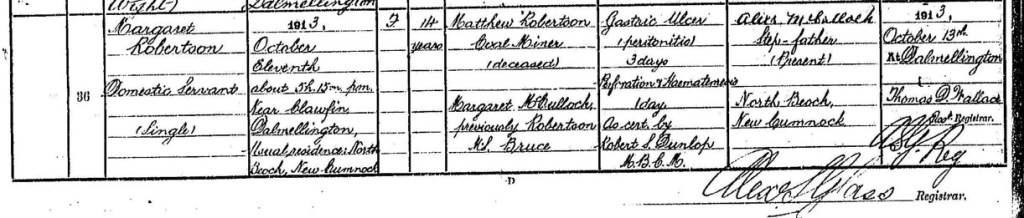 Wight) Dalmellington
36
Margaret
Robertson
Domestic Servant
(Single)
1913,
October
Eleventh
about 5h. 15m. p.m.
Near Clawfin
Dalmellington,
Usual residence: North
Beoch, New Cumnock
F
14
years
Matthew Robertson
Coal Miner
(deceased)
Margaret McCulloch,
previously Robertson
M.S. Bruce
Gastric Ulcer
(peritonitis)
3 days
Perforation & Haematemesis
1 day
As cert. by
Robert S. Dunlop
M.B.C.M.
McCulloch
Step-father
(Present)
North Beoch,
New Cumnock
1913,
October 13th
At Dalmellington
Thomas D. Wallace
Asst. Registrar.
Reg
Alex S Glass
Registrar.